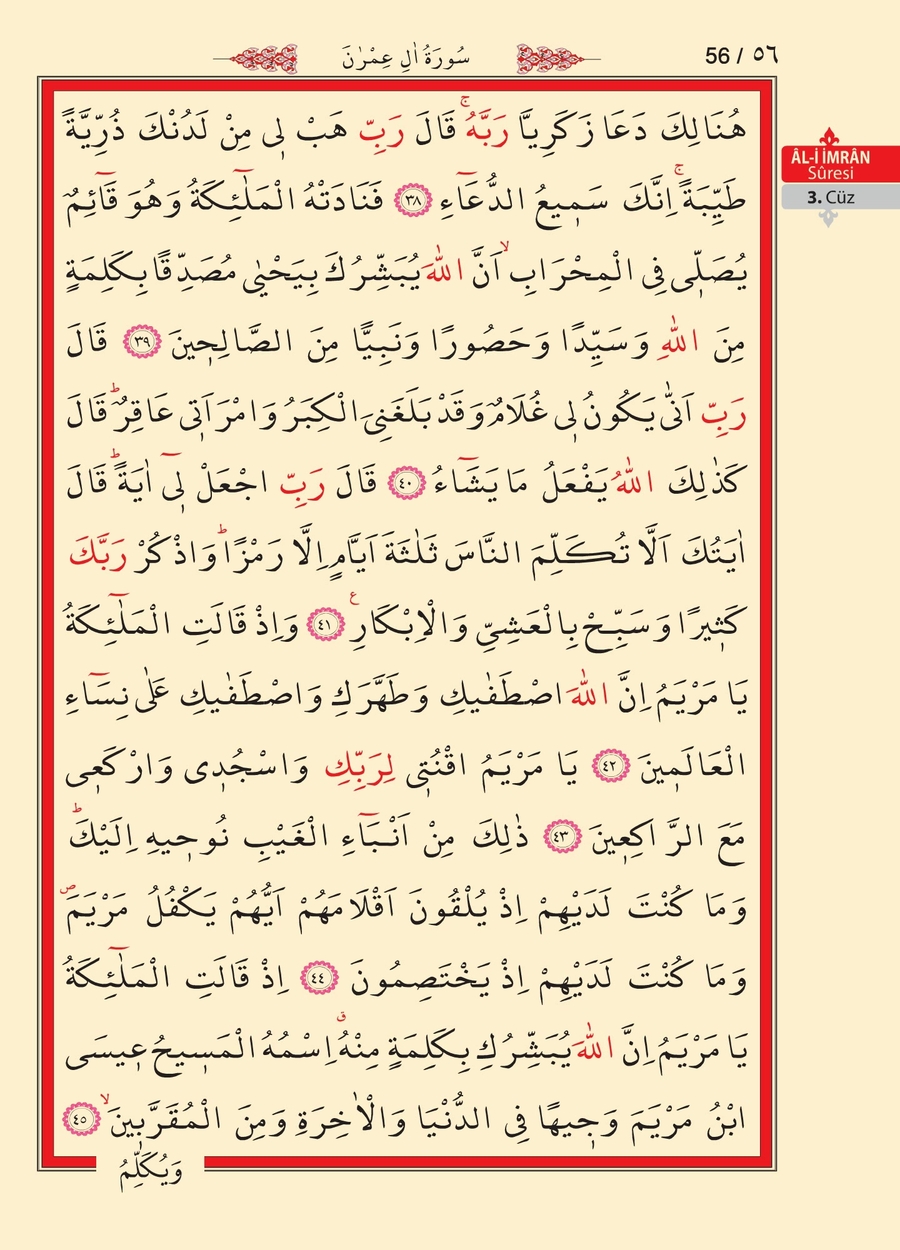 56 / ٥٦
سُورَةُ اٰلِ عِمْرٰنَ
ÂL-İ İMRÂN
Sûresi
3. Cüz
هُنَالِكَ دَعَا زَكَرِيَّا رَبَّهُۚ قَالَ رَبِّ هَبْ لٖى مِنْ لَدُنْكَ ذُرِّيَّةً
طَيِّبَةًۚ اِنَّكَ سَمٖيعُ الدُّعَٓاءِ ﴿٣٨﴾ فَنَادَتْهُ الْمَلٰٓئِكَةُ وَهُوَ قَٓائِمٌ
يُصَلّٖى فِى الْمِحْرَابِۙ اَنَّ اللّٰهَ يُبَشِّرُكَ بِيَحْيٰى مُصَدِّقًا بِكَلِمَةٍ
مِنَ اللّٰهِ وَسَيِّدًا وَحَصُورًا وَنَبِيًّا مِنَ الصَّالِحٖينَ ﴿٣٩﴾ قَالَ
رَبِّ اَنّٰى يَكُونُ لٖى غُلَامٌ وَقَدْ بَلَغَنِىَ الْكِبَرُ وَامْرَاَتٖى عَاقِرٌؕ قَالَ
كَذٰلِكَ اللّٰهُ يَفْعَلُ مَا يَشَٓاءُ ﴿٤٠﴾ قَالَ رَبِّ اجْعَلْ لٖٓى اٰيَةًؕ قَالَ
اٰيَتُكَ اَلَّا تُكَلِّمَ النَّاسَ ثَلٰثَةَ اَيَّامٍ اِلَّا رَمْزًاؕ وَاذْكُرْ رَبَّكَ
كَثٖيرًا وَسَبِّحْ بِالْعَشِىِّ وَالْاِبْكَارِ ﴿٤١﴾ع وَاِذْ قَالَتِ الْمَلٰٓئِكَةُ
يَا مَرْيَمُ اِنَّ اللّٰهَ اصْطَفٰيكِ وَطَهَّرَكِ وَاصْطَفٰيكِ عَلٰى نِسَٓاءِ
الْعَالَمٖينَ ﴿٤٢﴾ يَا مَرْيَمُ اقْنُتٖى لِرَبِّكِ وَاسْجُدٖى وَارْكَعٖى
مَعَ الرَّاكِعٖينَ ﴿٤٣﴾ ذٰلِكَ مِنْ اَنْبَٓاءِ الْغَيْبِ نُوحٖيهِ اِلَيْكَؕ
وَمَا كُنْتَ لَدَيْهِمْ اِذْ يُلْقُونَ اَقْلَامَهُمْ اَيُّهُمْ يَكْفُلُ مَرْيَمَۖ
وَمَا كُنْتَ لَدَيْهِمْ اِذْ يَخْتَصِمُونَ ﴿٤٤﴾ اِذْ قَالَتِ الْمَلٰٓئِكَةُ
يَا مَرْيَمُ اِنَّ اللّٰهَ يُبَشِّرُكِ بِكَلِمَةٍ مِنْهُࣗ اِسْمُهُ الْمَسٖيحُ عٖيسَى
ابْنُ مَرْيَمَ وَجٖيهًا فِى الدُّنْيَا وَالْاٰخِرَةِ وَمِنَ الْمُقَرَّبٖينَۙ ﴿٤٥﴾
وَيُكَلِّمُ